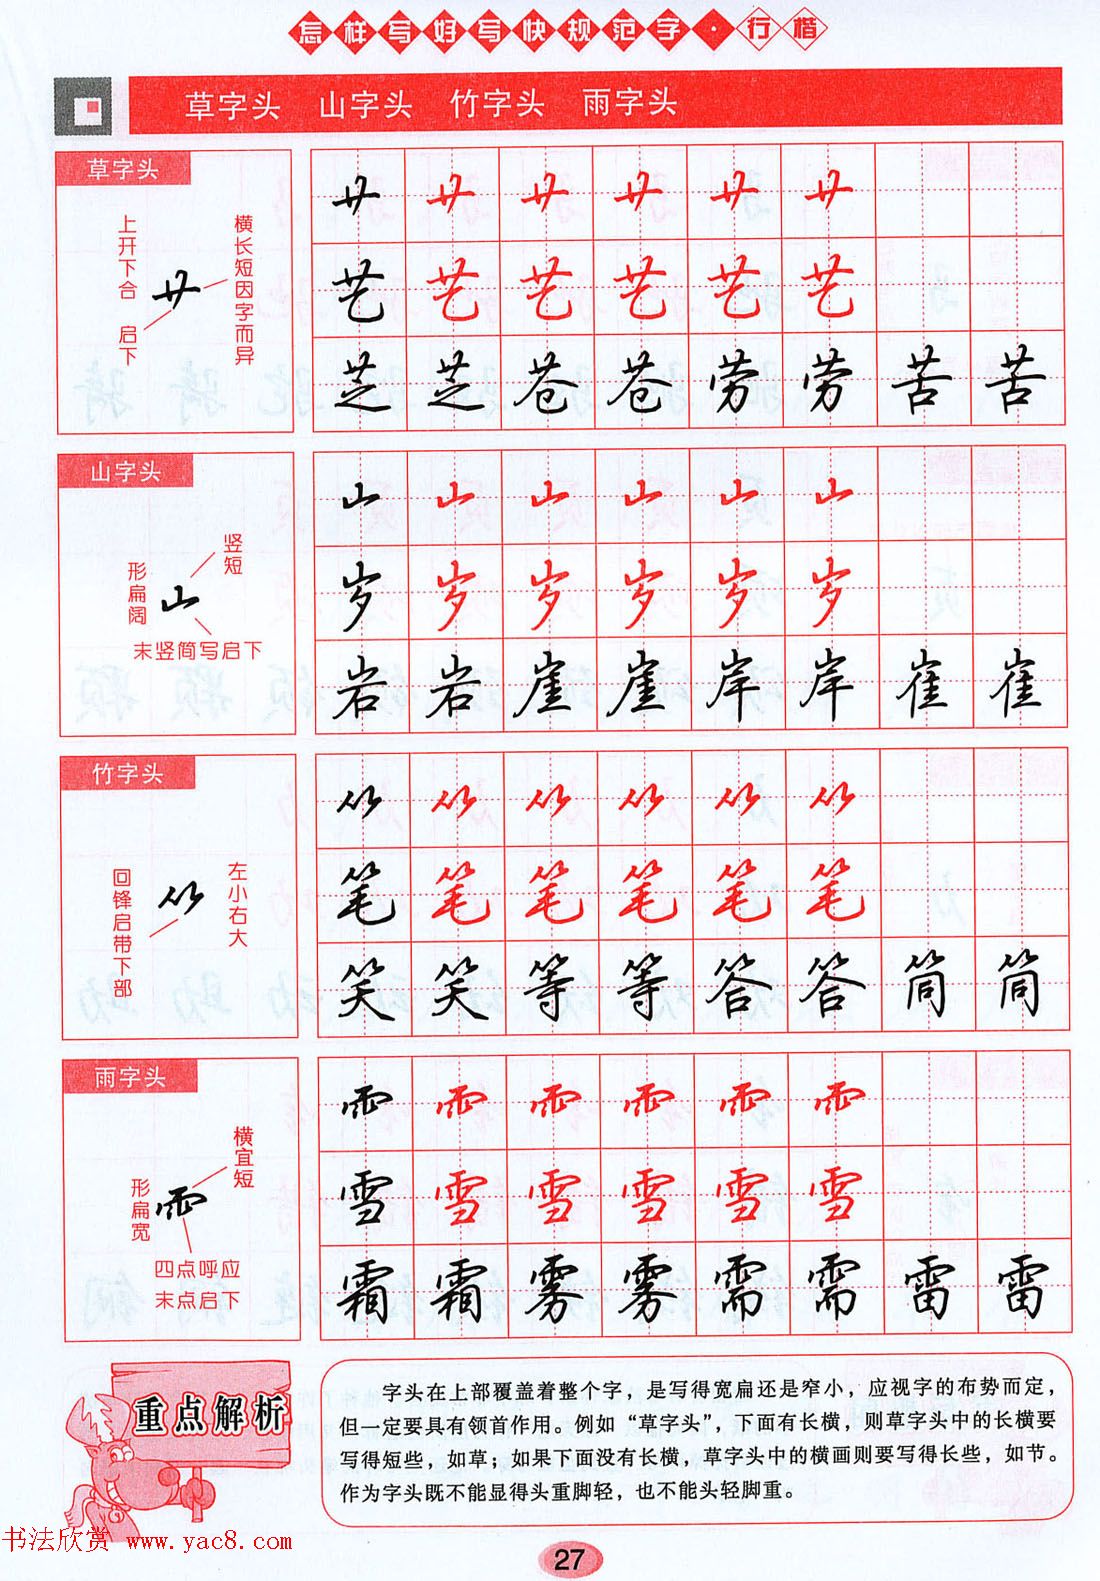 怎样写好写快规范字·行楷
草字头 山字头 竹字头 雨字头
草字头
上开下合 启下
横长短因字而异
艹
艹 艹 艹 艹 艹 艹
艺 艺 艺 艺 艺 艺
芝 芝 苍 苍 劳 劳 苦 苦
山字头
竖短
形扁阔
山
末竖简写启下
山 山 山 山 山 山
岁 岁 岁 岁 岁 岁
岩 岩 崖 崖 岸 岸 崔 崔
竹字头
回锋启带下部
左小右大
⺮
⺮ ⺮ ⺮ ⺮ ⺮ ⺮
笔 笔 笔 笔 笔 笔
笑 笑 等 等 答 答 筒 筒
雨字头
横宜短
形扁宽
⻗
四点呼应
末点启下
⻗ ⻗ ⻗ ⻗ ⻗ ⻗
雪 雪 雪 雪 雪 雪
霜 霜 雾 雾 需 需 雷 雷
重点解析
字头在上部覆盖着整个字，是写得宽扁还是窄小，应视字的布势而定，
但一定要具有领首作用。例如“草字头”，下面有长横，则草字头中的长横要
写得短些，如草；如果下面没有长横，草字头中的横画则要写得长些，如节。
作为字头既不能显得头重脚轻，也不能头轻脚重。
书法欣赏 www.yac8.com
27